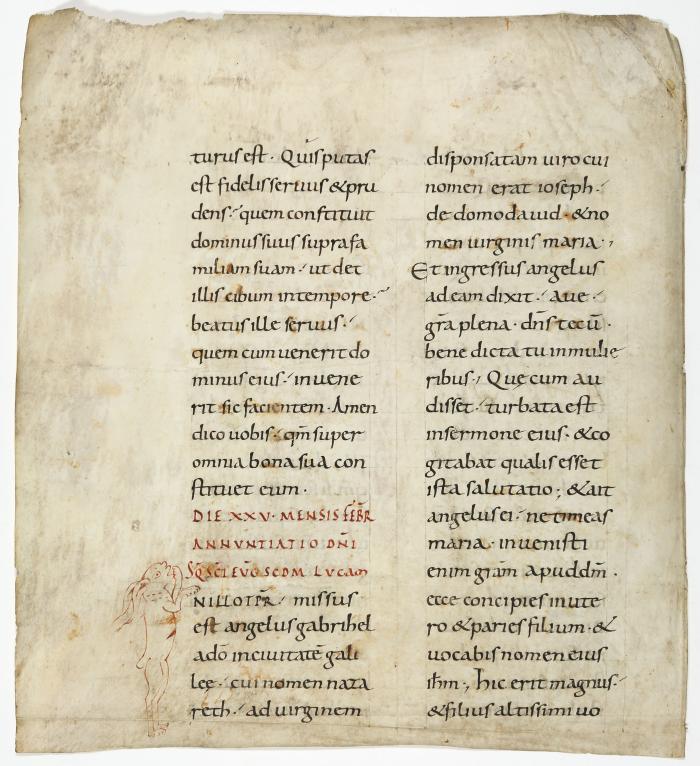 turus est · Quis putas
est fidelis seruus & pru
dens · quem constituit
dominus suus supra fa
miliam suam · ut det
illis cibum in tempore ·
beatus ille seruus ·
quem cum uenerit do
minus eius · inuene
rit sic facientem · Amen
dico uobis · qm̄ super
omnia bona sua con
stituet eum ·
DIE XXV · MENSIS FEB̄R
ANNVNTIATIO DN̄I
SQ SC̄I EVḠ SCDM LVCAM
N ILLO TP̄R · missus
est angelus gabrihel
a dō in ciuitatē gali
lęę · cui nomen naza
reth · ad uirginem
disponsatam uiro cui
nomen erat ioseph ·
de domo dauid · & no
men uirginis maria ·
Et ingressus angelus
ad eam dixit · aue ·
gr̄a plena · dn̄s tecū ·
benedicta tu in mulie
ribus · Quę cum au
disset · turbata est
in sermone eius · & co
gitabat qualis esset
ista salutatio ; & ait
angelus ei · ne timeas
maria · inuenisti
enim grām apud dm̄ ·
ecce concipies in ute
ro & paries filium · &
uocabis nomen eius
ihm̄ ·, hic erit magnus ·
& filius altissimi uo